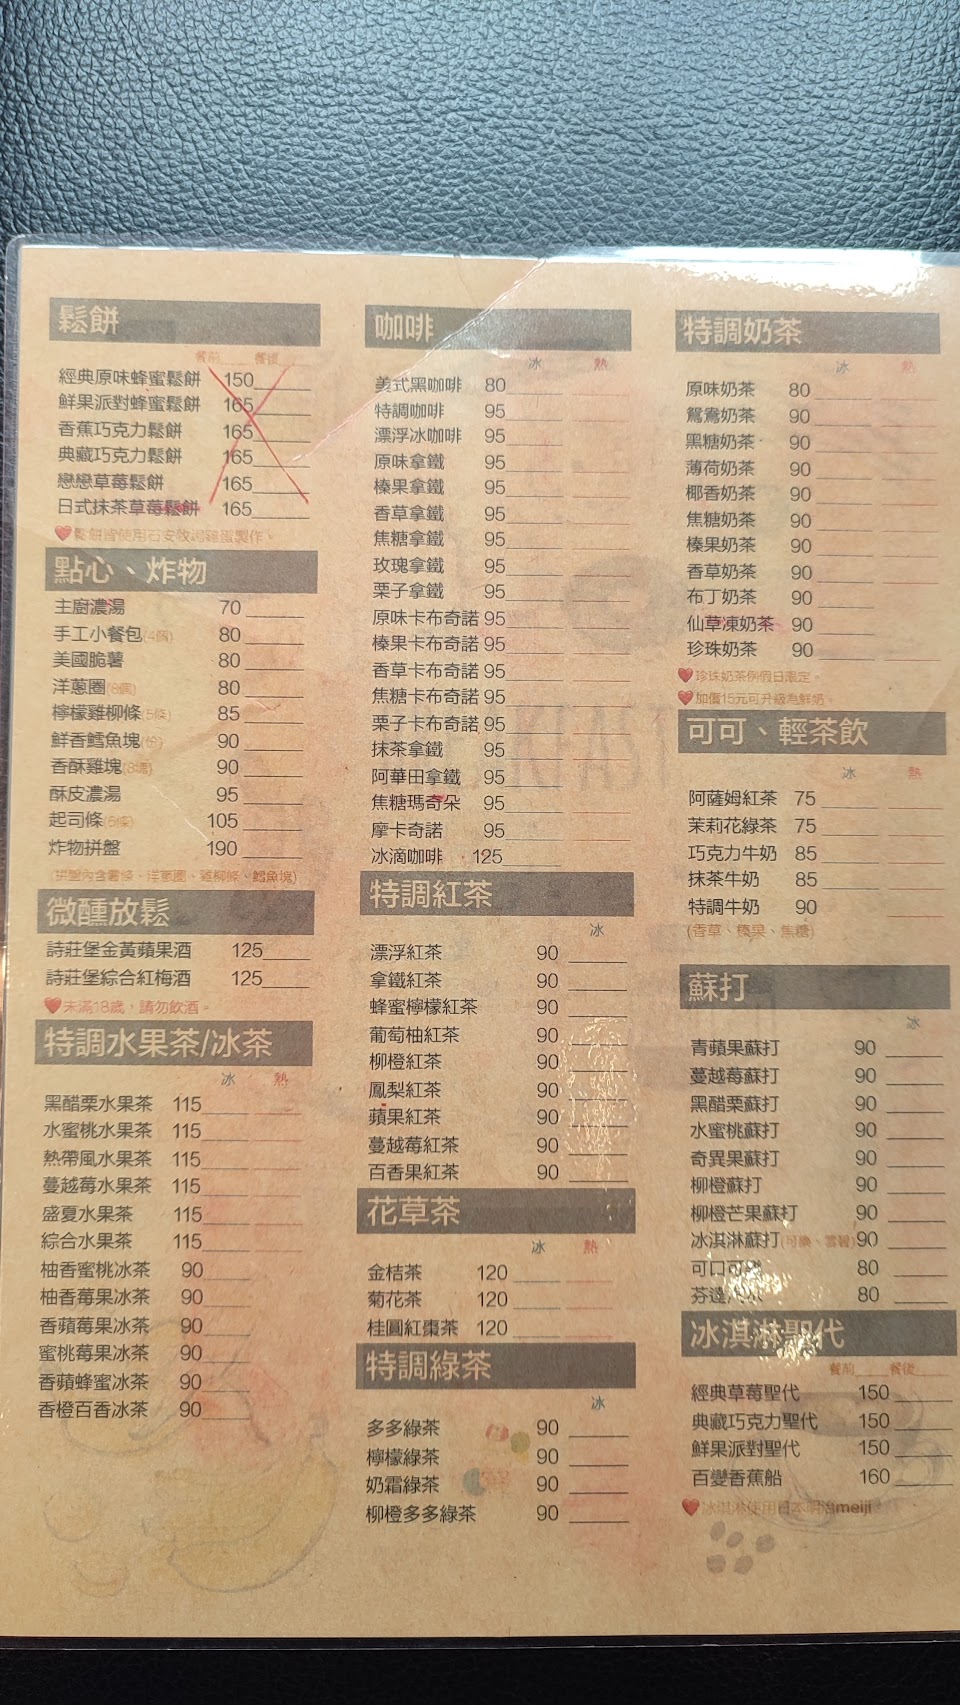 鬆餅
餐前____餐後____
經典原味蜂蜜鬆餅 150
鮮果派對蜂蜜鬆餅 165
香蕉巧克力鬆餅 165
典藏巧克力鬆餅 165
戀戀草莓鬆餅 165
日式抹茶草莓鬆餅 165
❤鬆餅皆使用石安牧場雞蛋製作。
點心、炸物
主廚濃湯 70
手工小餐包(4個) 80
美國脆薯 80
洋蔥圈(8個) 80
檸檬雞柳條(5條) 85
鮮香鱈魚塊(份) 90
香酥雞塊(8塊) 90
酥皮濃湯 95
起司條(6條) 105
炸物拼盤 190
(拼盤內含薯條、洋蔥圈、雞柳條、鱈魚塊)
微醺放鬆
詩莊堡金黃蘋果酒 125
詩莊堡綜合紅梅酒 125
❤未滿18歲，請勿飲酒。
特調水果茶/冰茶
冰 熱
黑醋栗水果茶 115
水蜜桃水果茶 115
熱帶風水果茶 115
蔓越莓水果茶 115
盛夏水果茶 115
綜合水果茶 115
柚香蜜桃冰茶 90
柚香莓果冰茶 90
香蘋莓果冰茶 90
蜜桃莓果冰茶 90
香蘋蜂蜜冰茶 90
香橙百香冰茶 90
咖啡
冰 熱
美式黑咖啡 80
特調咖啡 95
漂浮冰咖啡 95
原味拿鐵 95
榛果拿鐵 95
香草拿鐵 95
焦糖拿鐵 95
玫瑰拿鐵 95
栗子拿鐵 95
原味卡布奇諾 95
榛果卡布奇諾 95
香草卡布奇諾 95
焦糖卡布奇諾 95
栗子卡布奇諾 95
抹茶拿鐵 95
阿華田拿鐵 95
焦糖瑪奇朵 95
摩卡奇諾 95
冰滴咖啡 125
特調紅茶
冰
漂浮紅茶 90
拿鐵紅茶 90
蜂蜜檸檬紅茶 90
葡萄柚紅茶 90
柳橙紅茶 90
鳳梨紅茶 90
蘋果紅茶 90
蔓越莓紅茶 90
百香果紅茶 90
花草茶
冰 熱
金桔茶 120
菊花茶 120
桂圓紅棗茶 120
特調綠茶
冰
多多綠茶 90
檸檬綠茶 90
奶霜綠茶 90
柳橙多多綠茶 90
特調奶茶
冰 熱
原味奶茶 80
鴛鴦奶茶 90
黑糖奶茶 90
薄荷奶茶 90
椰香奶茶 90
焦糖奶茶 90
榛果奶茶 90
香草奶茶 90
布丁奶茶 90
仙草凍奶茶 90
珍珠奶茶 90
❤珍珠奶茶例假日限定。
❤加價15元可升級為鮮奶。
可可、輕茶飲
冰 熱
阿薩姆紅茶 75
茉莉花綠茶 75
巧克力牛奶 85
抹茶牛奶 85
特調牛奶 90
(香草、榛果、焦糖)
蘇打
冰
青蘋果蘇打 90
蔓越莓蘇打 90
黑醋栗蘇打 90
水蜜桃蘇打 90
奇異果蘇打 90
柳橙蘇打 90
柳橙芒果蘇打 90
冰淇淋蘇打(可樂、雪碧) 90
可口可 80
芬達 80
冰淇淋聖代
餐前____餐後____
經典草莓聖代 150
典藏巧克力聖代 150
鮮果派對聖代 150
百變香蕉船 160
❤冰淇淋使用日本明治meiji。